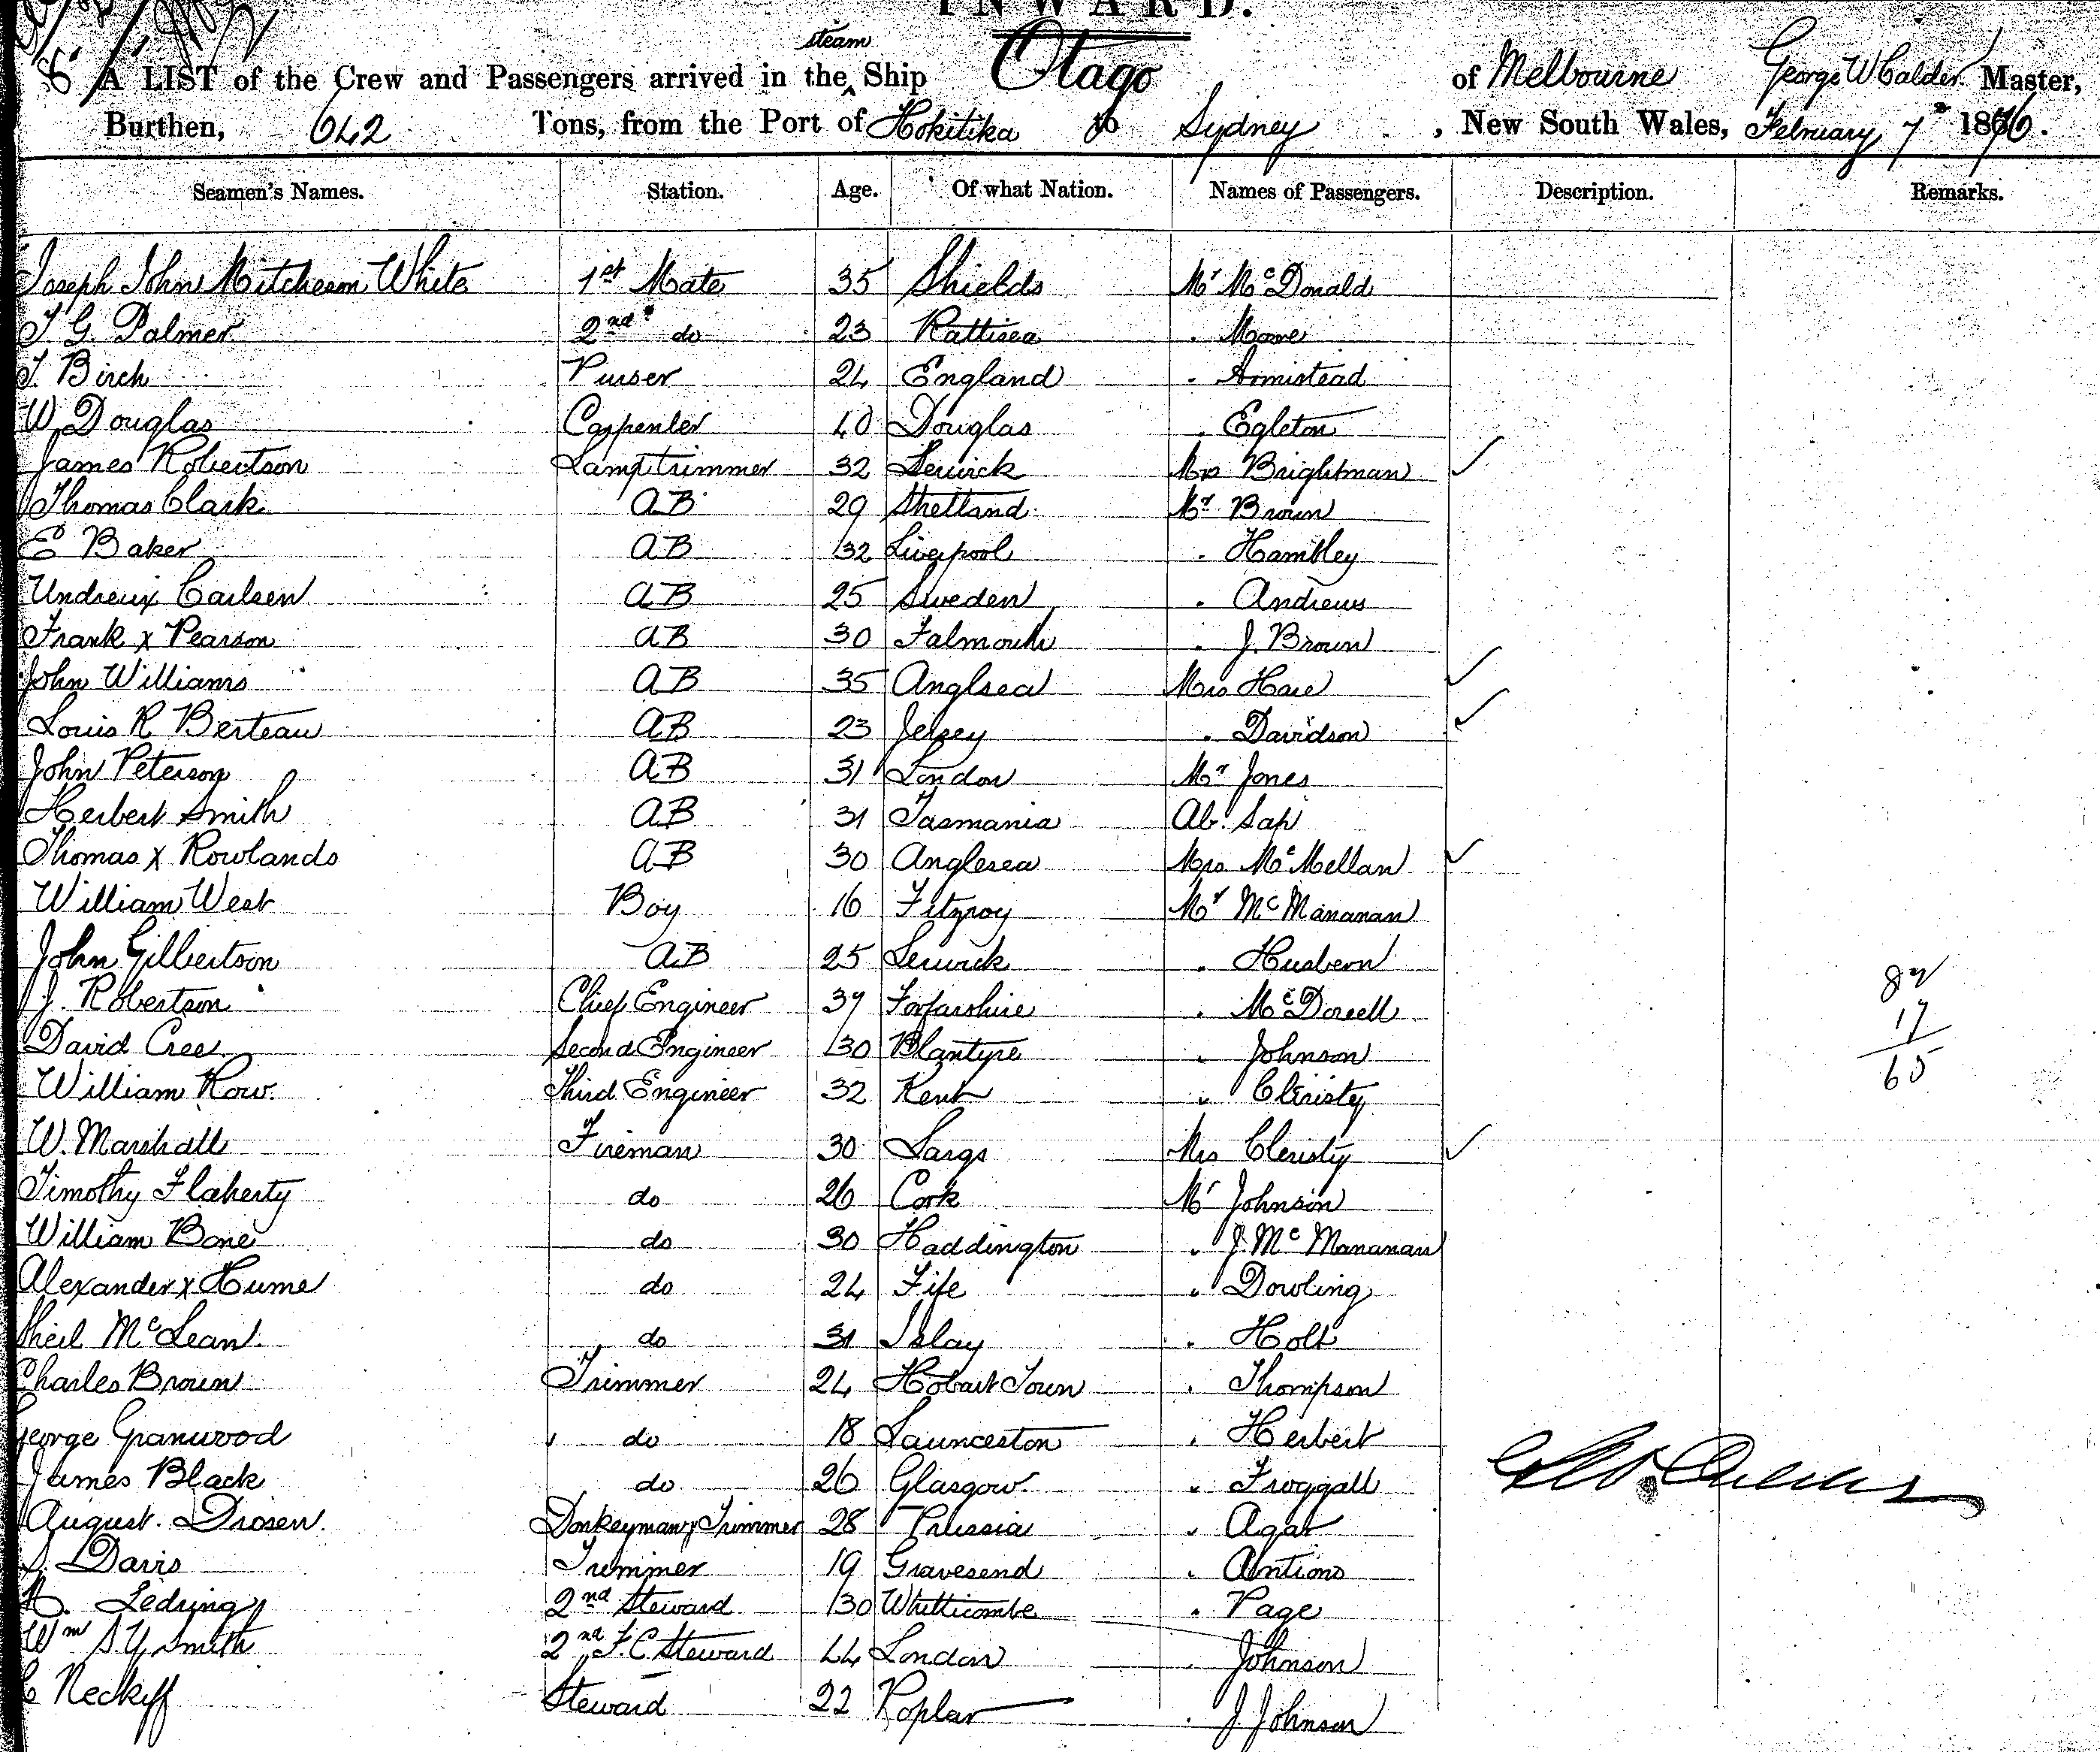 INWARD.
A LIST of the Crew and Passengers arrived in the steam Ship Otago of Melbourne George W Calder Master,
Burthen, 642 Tons, from the Port of Hokitika to Sydney, New South Wales, February 7th 1876.
Seamen's Names. Station. Age. Of what Nation. Names of Passengers. Description. Remarks.
Joseph John Mitcheson White 1st Mate 35 Shields Mr McDonald
T G. Palmer 2nd do 23 . Mowe
T. Birch Purser 24 England . Armistead
W Douglas Carpenter 40 Douglas . Egleton
James Robertson Lamptrimmer 32 Lerwick Mrs Brightman ✓
Thomas Clark AB 29 Shetland Mr Brown
E Baker AB 32 Liverpool . Hambley
Carlsen AB 25 Sweden . Andrews
Frank x Pearson AB 30 Falmouth . J. Brown
John Williams AB 35 Anglsea Mrs Hare ✓
Louis R Berteau AB 23 Jersey . Davidson ✓
John Peterson AB 31 London Mr Jones
Herbert Smith AB 31 Tasmania Ab. Sap
Thomas x Rowlands AB 30 Anglesea Mrs McMellan ✓
William West Boy 16 Fitzroy Mr McMananan
John Gilbertson AB 25 Lerwick . Husbern
J. Robertson Chief Engineer 39 Forfarshire . McDowell 82
David Cree Second Engineer 30 Blantyre " Johnson 17
William Row. Third Engineer 32 Kent " Christy 65
W. Marshall Fireman 30 Largs Mrs Christy ✓
Timothy Flaherty do 26 Cork Mr Johnson
William Bone do 30 Haddington " J. McMananan
Alexander x Hume do 24 Fife " Dowling
Neil McLean do 31 Islay . Holt
Charles Brown Trimmer 24 Hobart Town . Thompson
George Granwood do 18 Launceston . Herbert
James Black do 26 Glasgow. " Froggatt
August. Drosen. Donkeyman & Trimmer 28 Prussia " Agar
S. Davis Trimmer 19 Gravesend . Antions
H. Ledring 2nd Steward 30 Whitticombe . Page
Wm S.Y. Smith 2nd F.C. Steward 44 London . Johnson
C Neckiff Steward 22 Poplar . J. Johnson